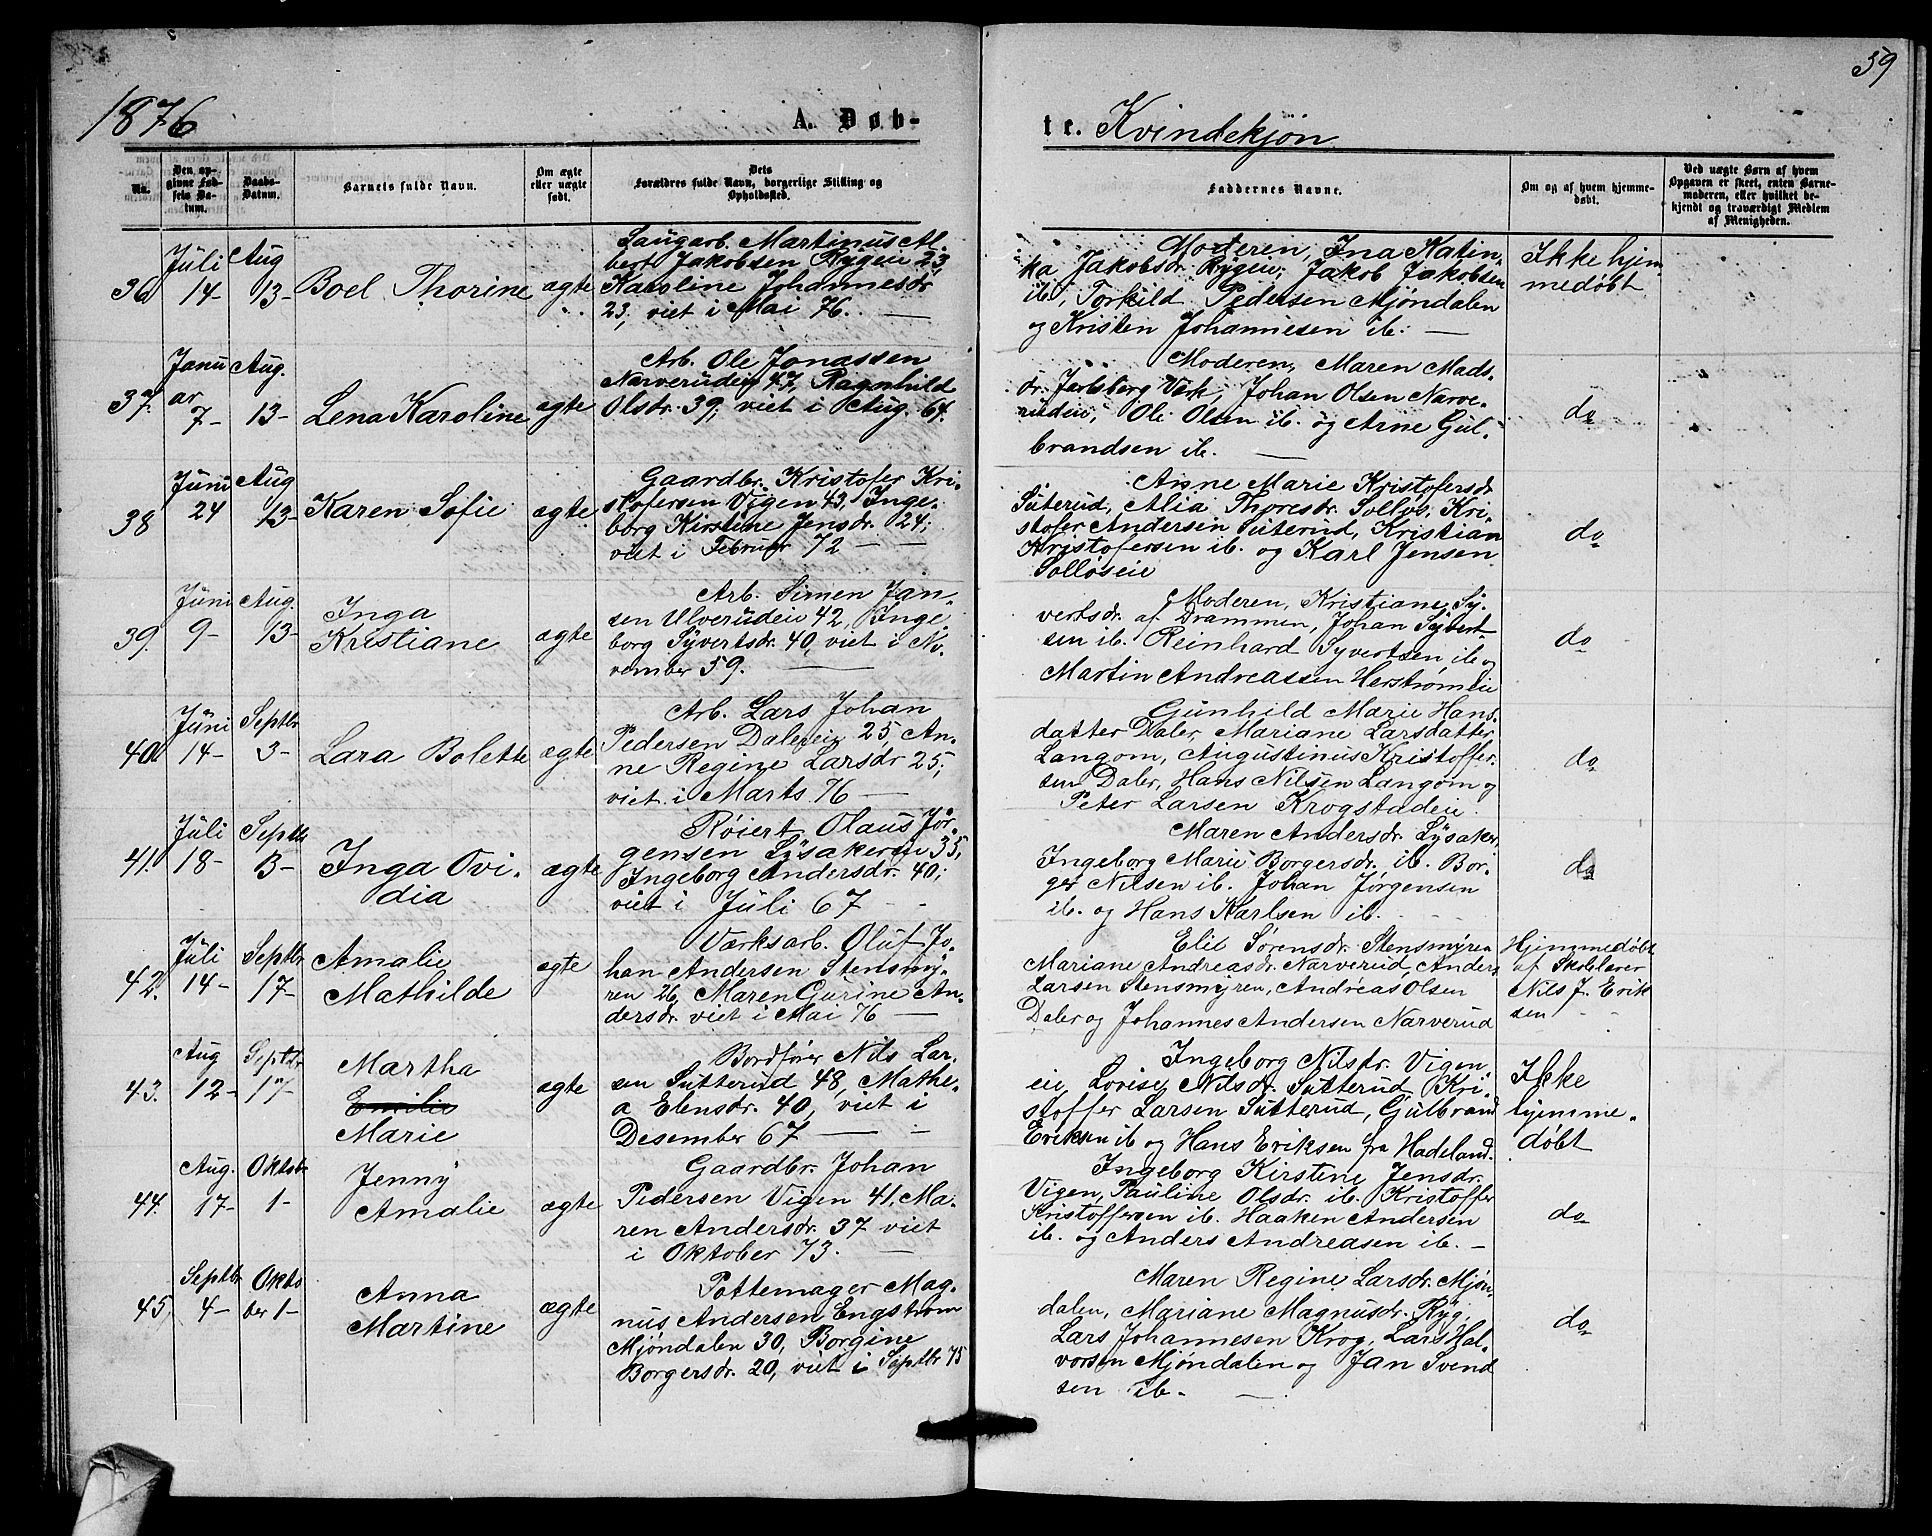 59
1876
A. Døb-
te. Kvindekjøn
No.
Den op-
givne Fød-
sels Da-
tum.
Daabs-
Datum.
Barnets fulde Navn.
Om ægte
eller uægte
født.
Dets
Forældres fulde Navn, borgerlige Stilling og
Opholdssted.
Faddernes Navne.
Om og af hvem hjemme-
døbt.
Ved uægte Børn af hvem
Opgaven er skeet, enten Barne-
moderen, eller hvilket be-
kjendt og troværdigt Medlem
af Menigheden.
36
Juli
14-
Aug
13-
Boel Thorine
ægte
Laugarb. Martinus Al-
bert Jakobsen Rygeie 23,
Karoline Johannesdr
23, viet i Mai 76. —
Moderen, Ina Katin-
ka Jakobsdr. Rygeie, Jakob Jakobsen
ib, Torkild Pedersen Mjøndalen
og Kristen Johannesen ib: —
Ikke hjem-
medøbt
37.
Janu
ar
7-
Aug.
13-
Lena Karoline
ægte
Arb. Ole Jonassen
Narverudeie 47, Ragnhild
Olsdr. 39, viet i Aug. 64.
Moderen, Maren Mads-
dr. Jarlsberg Verk, Johan Olsen Narve-
rudeie, Ole Olsen ib. og Arne Gul-
brandsen ib. —
do
38
Juni
24
Aug
13-
Karen Sofie
ægte
Gaardbr. Kristofer Kri-
stofersen Vigen 43, Inge-
borg Kirstine Jensdr. 24;
viet i Februar 72 —
Anne Marie Kristofersdr
Suterud, Alia Thoresdr. Solløs, Kri-
stofer Andersen Suterud, Kristian
Kristofersen ib. og Karl Jensen
Solløseie
do
39.
Juni
9-
Aug.
13-
Inga
Kristiane
ægte
Arb. Simen Jan-
sen Ulverudeie 42, Inge-
borg Syvertsdr. 40, viet i No-
vember 59. —
Moderen, Kristiane Sy-
vertsdr. af Drammen, Johan Syvert-
sen ib. Reinhard Syvertsen ib og
Martin Andreassen Herstrømeie
do
40.
Juni
14-
Septbr
3-
Lara Bolette
ægte
Arb. Lars Johan
Pedersen Dalereie 25, An-
ne Regine Larsdr 25;
viet i Marts 76 —
Gunhild Marie Hans-
datter Daler, Mariane Larsdatter
Langom, Augustinus Kristoffer-
sen Daler, Hans Nilsen Langom og
Peter Larsen Krogstadeie.
do
41.
Juli
18-
Septbr
3-
Inga Ovi-
dia
ægte
Røiert Olaus Jør-
gensen Lysakereie 35,
Ingeborg Andersdr. 40;
viet i Juli 67 - -
Maren Andersdr. Lysaker,
Ingeborg Marie Borgersdr. ib. Bor-
ger Nilsen ib. Johan Jørgensen
ib. og Hans Karlsen ib.
do
42.
Juli
14-
Septbr
17-
Amalie
Mathilde
ægte
Værksarb. Oluf Jo-
han Andersen Stensmy-
ren 26, Maren Gurine An-
dersdr. viet i Mai 76 —
Elie Sørensdr. Stensmyren
Mariane Andreasdr. Narverud, Anders
Larsen Stensmyren, Andreas Olsen
Daler og Johannes Andersen Narverud
Hjemmedøbt
af Skolelærer
Nils J. Erik
sen - -
43.
Aug
12-
Septbr
17-
Martha
Emilie
Marie
ægte
Bordfører Nils Lar-
sen Sutterud 48, Mathe-
a Elensdr. 40, viet i
Desember 67 — -
Ingeborg Nilsdr. Vigen-
eie, Lovise Nilsdr. Sutterud, Kri-
stoffer Larsen Sutterud, Gulbrand
Eriksen ib og Hans Eriksen fra Hadeland.
Ikke
hjemme-
døbt
44.
Aug.
17-
Oktobr
1-
Jenny
Amalie
ægte
Gaardbr. Johan
Pedersen Vigen 41, Ma-
ren Andersdr. 37 viet
i Oktober 73. —
Ingeborg Kirstine Jensdr.
Vigen, Pauline Olsdr. ib. Kristoffer
Kristoffersen ib. Haaken Andersen
ib. og Anders Andreasen ib. -
do
45,
Septbr
4-
Okto
ber 1-
Anna
Martine
ægte
Pottemager Mag-
nus Andersen Engstrøm
Mjøndalen 30, Borgine
Borgersdr. 20, viet i Septbr 75
Maren Regine Larsdr. Mjøn-
dalen, Mariane Magnusdr. Ryg,
Lars Johannesen Krog, Lars Hal-
vorsen Mjøndalen og Jan Svend
sen ib. —
do